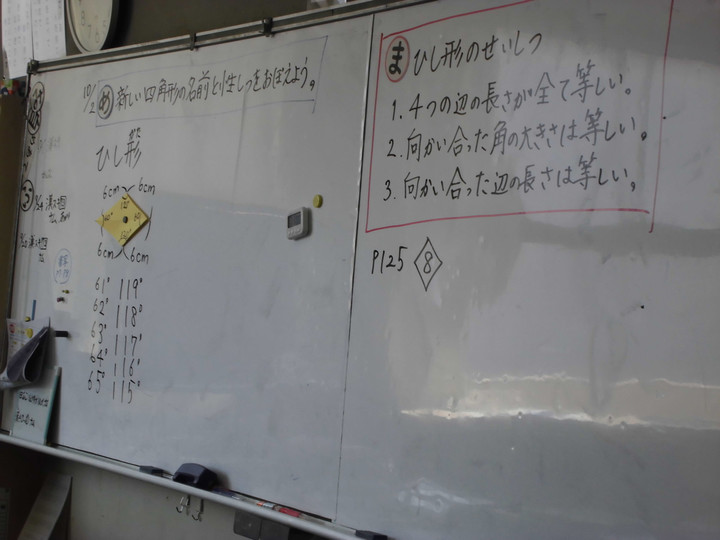 10/2 め 新しい四角形の名前と性しつをおぼえよう。
ひし形
6cm 6cm
6cm 6cm
61° 119°
62° 118°
63° 117°
64° 116°
65° 115°
ま ひし形のせいしつ
1. 4つの辺の長さが全て等しい。
2. 向かい合った角の大きさは等しい。
3. 向かい合った辺の長さは等しい。
P125 8